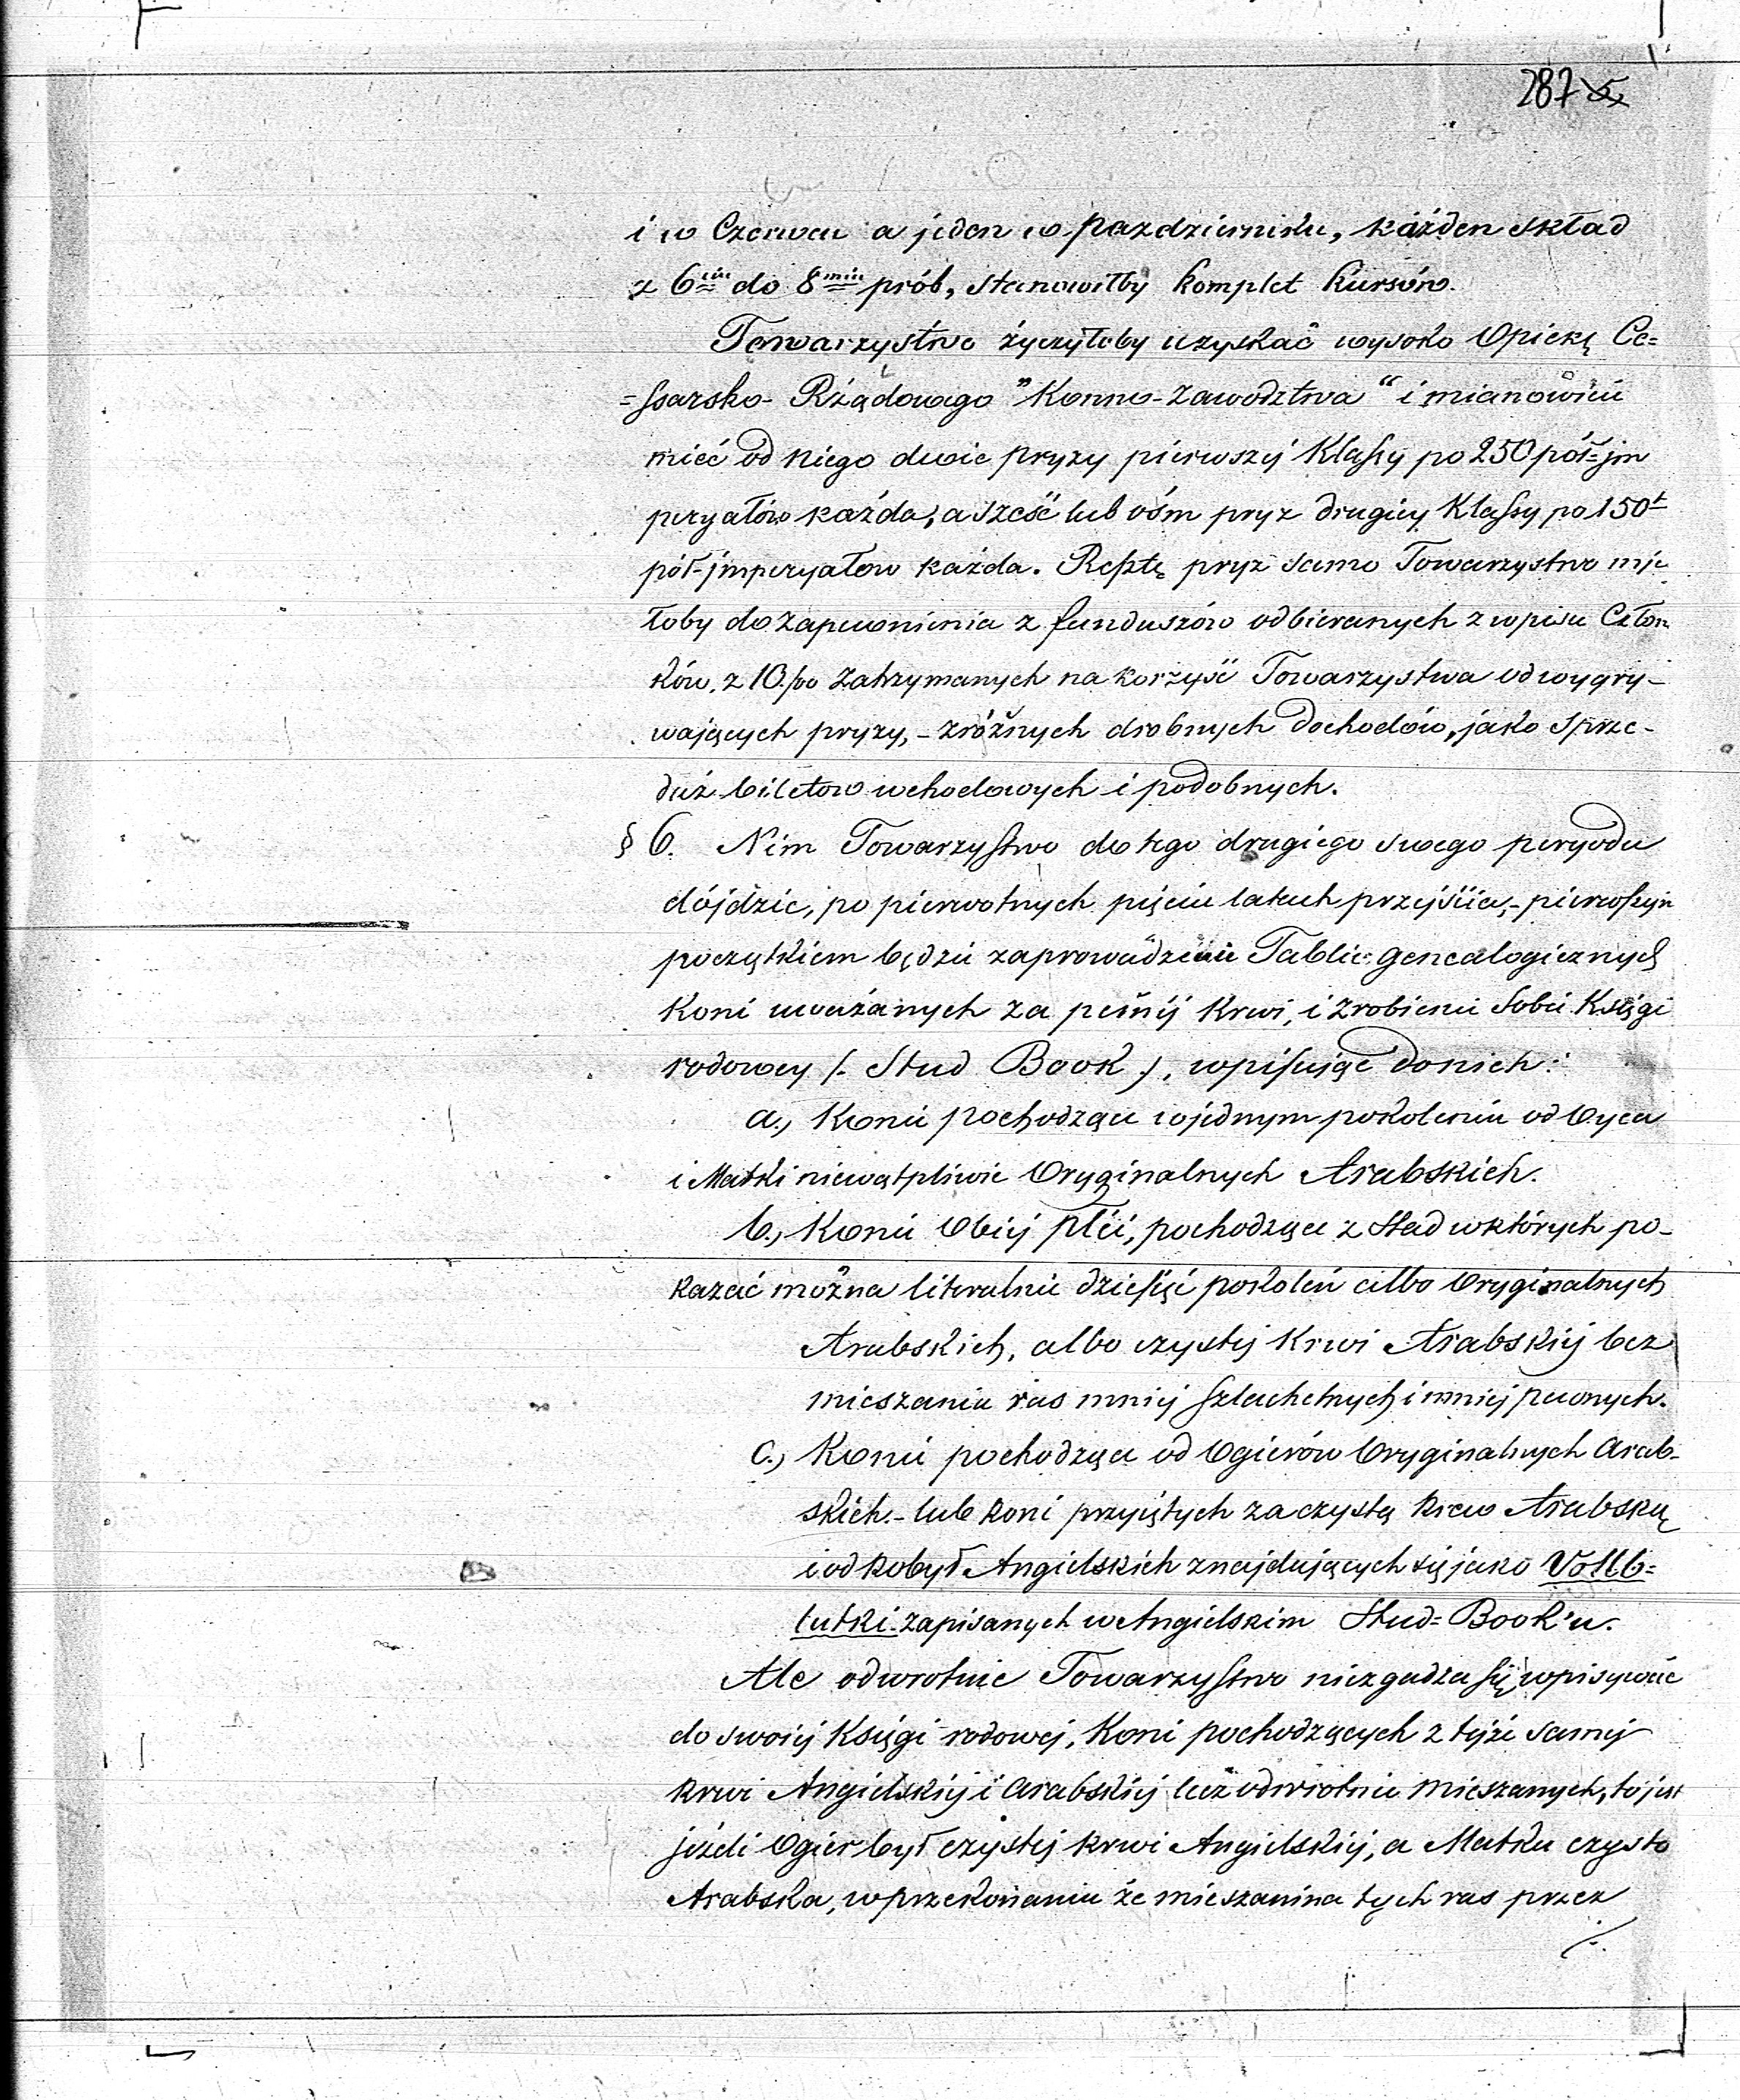 287
i w Czerwcu a jeden w Pazdzierniku, każden skład
z 6ciu do 8miu prób, stanowiłby komplet Kursów.
Towarzystwo życzyłoby uzyskać wysoko Opiekę Ce=
=ssarsko-Rządowego "Konno-Zawodztwa" i mianowicie
mieć od niego dwie pryzy pierwszéj Klassy po 250 pół=jm
peryałów każda, a sześć lub óśm pryz drugiéy Klassy po 150t
pół-jmperyałow każda. Resztę pryz samo Towarzystwo mia
łoby do zapewnienia z funduszów odbieranych z wpisu Człon
ków, z 10. p/oo zatrzymanych na korzyść Towarzystwa od wygry-
wających pryzy, - z różnych drobnych dochodów, jako Sprze-
daż biletow wchodowych i podobnych.
§ 6. Nim Towarzystwo do tego drugiego swego peryodu
dójdzie, po pierwotnych pięciu latach przejścia, - pierwszym
początkiem będzie zaprowadzenie Tablic genealogicznych
koni uważanych za pełnéj Krwi, i zrobienie Sobie Księgi
rodowey (. Stud Book .), wpisując do nich:
a., Konie pochodzące w jednym pokoleniu od Oyca
i Matki niewątpliwie Oryginalnych Arabskich.
b., Konie Obiéj Płci, pochodzące z Stad w których po-
kazać można literalnie dziesięć pokoleń albo Oryginalnych
Arabskich, albo czystéj Krwi Arabskiéj bez
mieszania ras mniéj szlachetnych i mniéj pewnych.
C., Konie pochodzące od Ogierów Oryginalnych Arab-
skich - lub koni przyjętych za czystą krew Arabską
i od kobył Angielskich znajdujących się jako Vollb=
lutki zapisanych w Angielskim Stud=Book'u.
Ale odwrotnie Towarzystwo niezgadza się wpisywać
do swoiéj Księgi rodowéj, Koni pochodzących z téjże saméj
krwi Angielskiéj i Arabskiéj lecz odwrotnie mieszanych, to jest
jeżeli Ogier był czystéj krwi Angielskiéj, a Matka czysto
Arabska, w przekonaniu że mieszanina tych ras przez
./.